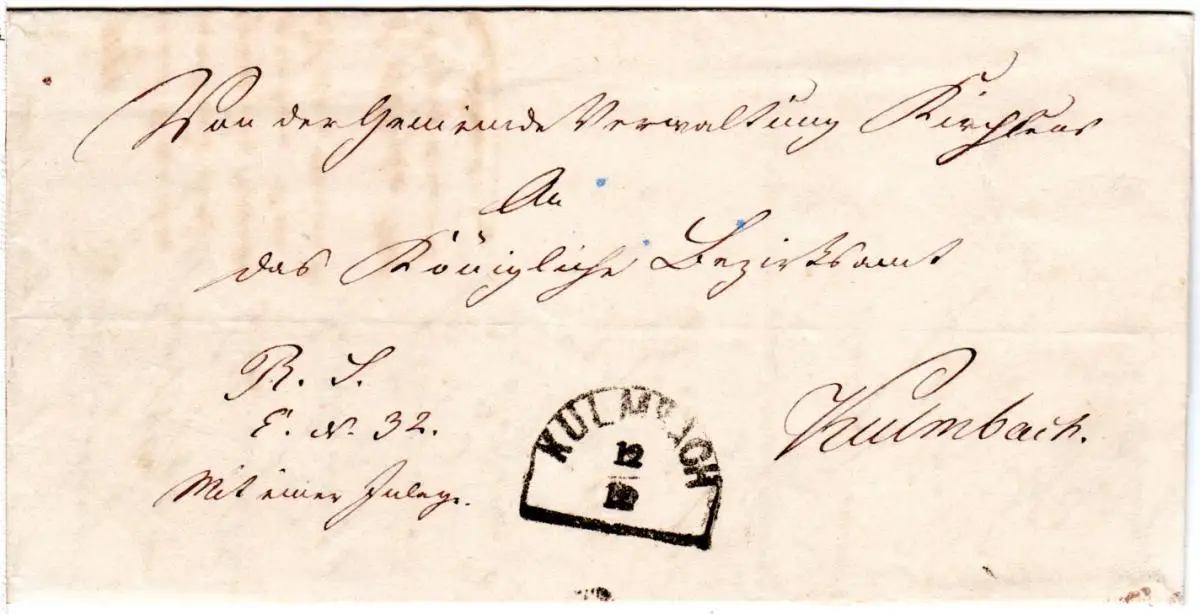 Von der Gemeinde Verwaltung Kirchleus
An
das Königliche Bezirksamt
R. S.
E. N. 32.
Mit einer Inlage.
Kulmbach.
KULMBACH
12
12